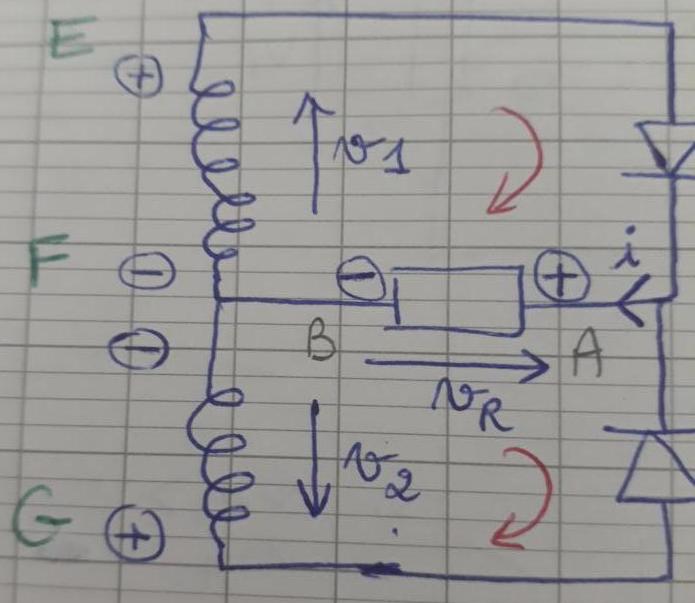 E
+
v1
F
-
-
+
i
-
B
A
vR
v2
G
+